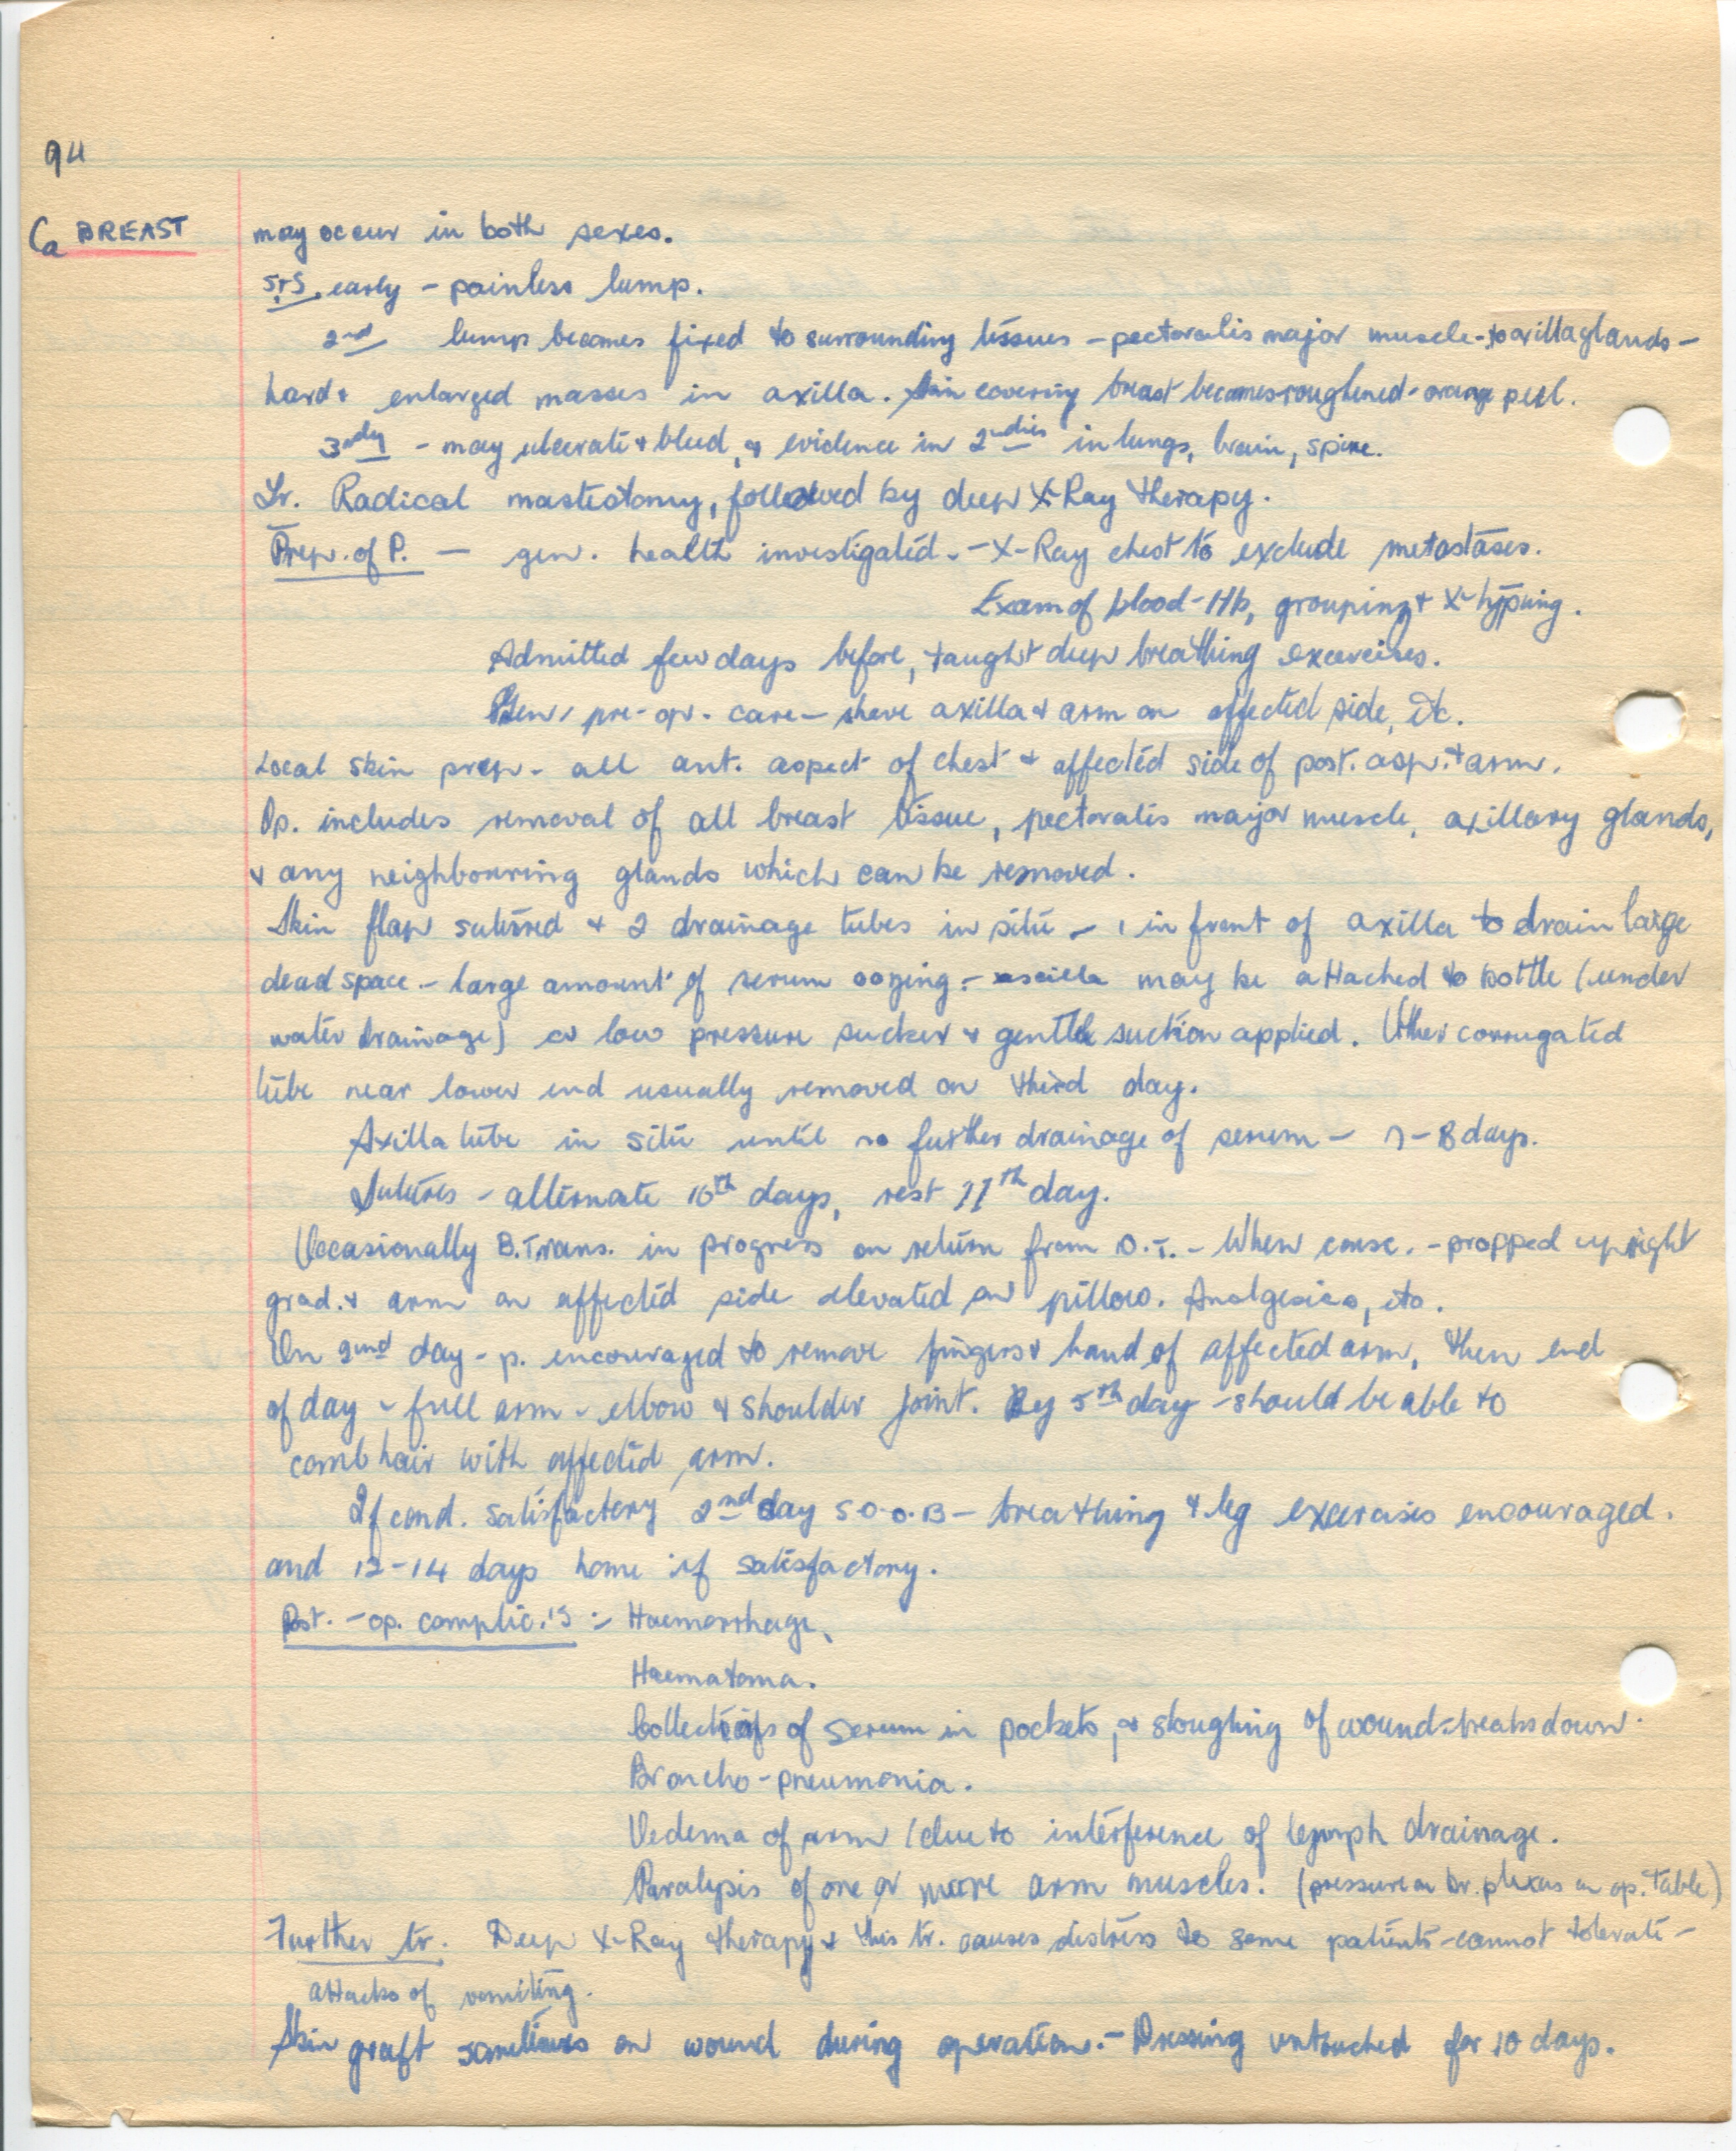 94
Ca BREAST
may occur in both sexes.
S+S. early - painless lump.
2nd lump becomes fixed to surrounding tissues - pectoralis major muscle - to axilla glands -
hard & enlarged masses in axilla. Skin covering breast becomes roughened - orange peel.
3rdly - may ulcerate & bleed, & evidence in 2ndries in lungs, brain, spine.
Tr. Radical mastectomy, followed by deep X-Ray therapy.
Prep. of P. - gen. health investigated. - X-Ray chest to exclude metastases.
Exam of blood - Hb, grouping & X-typing.
Admitted few days before, taught deep breathing exercises.
Gen. pre-op. care - shave axilla & arm on affected side, etc.
Local skin prep - all ant. aspect of chest & affected side of post. asp. & arm.
Op. includes removal of all breast tissue, pectoralis major muscle, axillary glands,
& any neighbouring glands which can be removed.
Skin flap sutured & 2 drainage tubes in situ - 1 in front of axilla to drain large
dead space - large amount of serum oozing - may be attached to bottle (under
water drainage) or low pressure sucker & gentle suction applied. Other corrugated
tube near lower end usually removed on third day.
Axilla tube in situ until no further drainage of serum - 7-8 days.
Sutures - alternate 10th days, rest 11th day.
Occasionally B.Trans. in progress on return from O.T. - When consc. - propped upright
grad. & arm on affected side elevated on pillow. Analgesics, etc.
On 2nd day - p. encouraged to remove fingers & hand of affected arm, then end
of day - full arm - elbow & shoulder joint. By 5th day - should be able to
comb hair with affected arm.
If cond. satisfactory 2nd day S.O.O.B - breathing & leg exercises encouraged.
and 12-14 days home if satisfactory.
Post.-op. complic.'s :- Haemorrhage.
Haematoma.
Collections of serum in pockets, & sloughing of wound - breaks down.
Broncho-pneumonia.
Oedema of arm (due to interference of lymph drainage.
Paralysis of one or more arm muscles. (pressure on br. plexus on op. table)
Further tr. Deep X-Ray therapy & this tr. causes distress to some patients - cannot tolerate -
attacks of vomiting.
Skin graft sometimes on wound during operation. - Dressing untouched for 10 days.